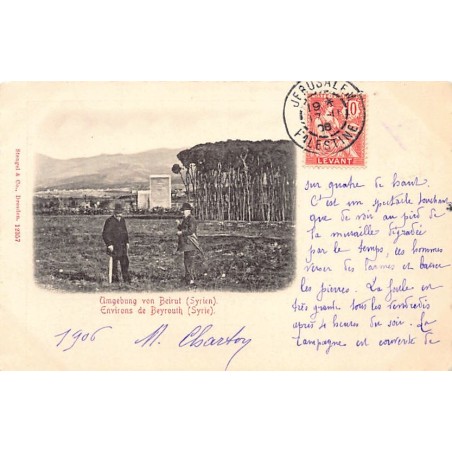 JERUSALEM
19
06
PALESTINE
10
LEVANT
Stengel & Co., Dresden. 12557
sur quatre de haut.
C'est un spectacle touchant
que de voir au pied de
la muraille dégradée
par le temps, les hommes
verser des larmes et baiser
les pierres. La foule en
très grande tous les vendredis
après 4 heures du soir. La
campagne est couverte de
Umgebung von Beirut (Syrien).
Environs de Beyrouth (Syrie).
1906 M. Charton